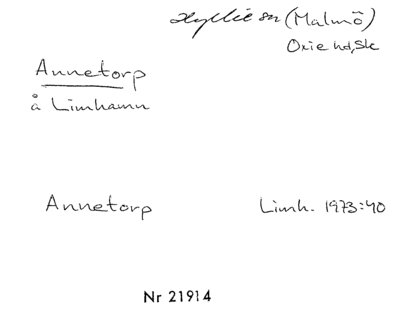 Hyllie sn (Malmö)
Oxie hd, Sk
Annetorp
å Limhamn
Annetorp Limh. 1973:40
Nr 21914